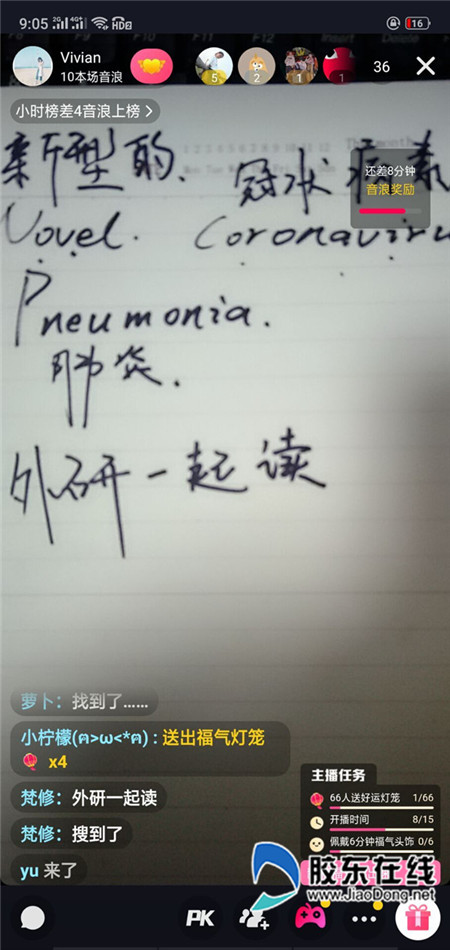 9:05
2G
4G+
HD2
16
Vivian
10本场音浪
5
2
1
1
36
小时榜差4音浪上榜
还差8分钟
音浪奖励
新型的. 冠状病毒
Novel. Coronaviru
Pneumonia.
肺炎.
外研一起读
萝卜：找到了......
小柠檬(ฅ>ω<*ฅ)：送出福气灯笼
x4
梵修：外研一起读
梵修：搜到了
yu 来了
主播任务
66人送好运灯笼 1/66
开播时间 8/15
佩戴6分钟福气头饰 0/6
胶东在线
www.JiaoDong.net
PK